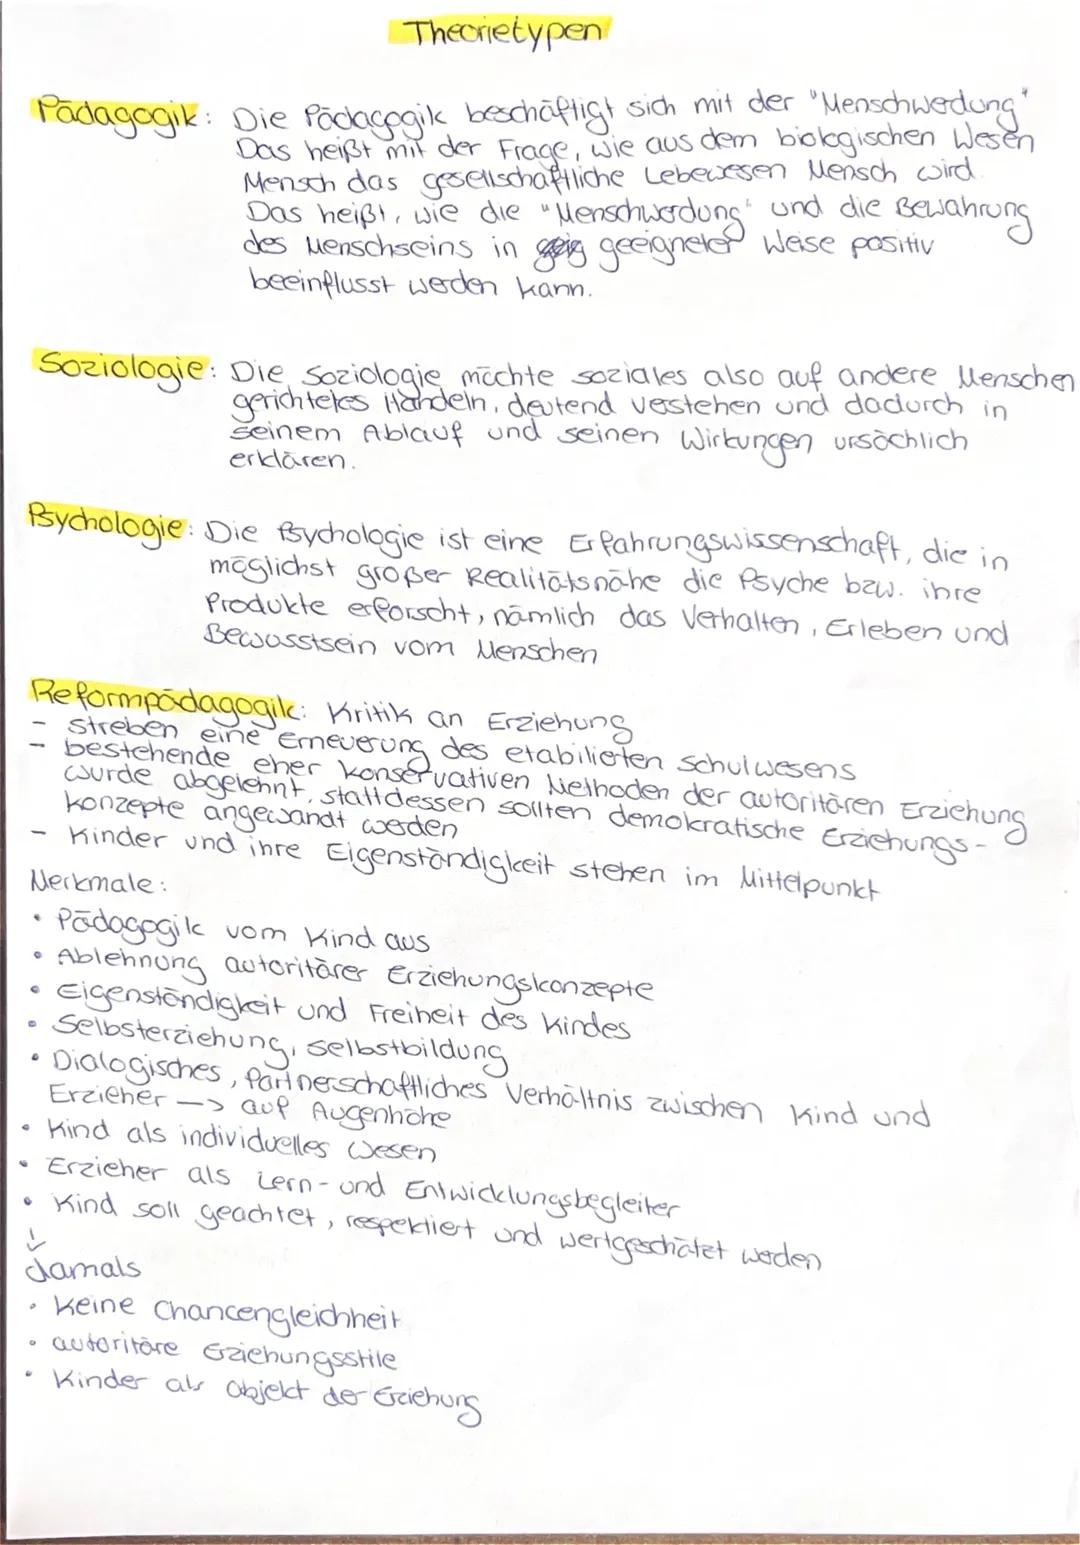 Theorietypen
Pädagogik: Die Pädagogik beschäftigt sich mit der "Menschwerdung"
Das heißt mit der Frage, wie aus dem biologischen Wesen
Mensch das gesellschaftliche Lebewesen Mensch wird.
Das heißt, wie die "Menschwerdung" und die Bewahrung
des Menschseins in geeigneter Weise positiv
beeinflusst werden kann.
Soziologie: Die Soziologie möchte soziales also auf andere Menschen
gerichtetes Handeln, deutend verstehen und dadurch in
seinem Ablauf und seinen Wirkungen ursächlich
erklären.
Psychologie: Die Psychologie ist eine Erfahrungswissenschaft, die in
möglichst großer Realitätsnähe die Psyche bzw. ihre
Produkte erforscht, nämlich das Verhalten, Erleben und
Bewusstsein vom Menschen
Reformpädagogik: Kritik an Erziehung
- streben eine Erneuerung des etabilierten Schulwesens
- bestehende eher konservativen Methoden der autoritären Erziehung
wurde abgelehnt, stattdessen sollten demokratische Erziehungs-
konzepte angewandt werden
- Kinder und ihre Eigenständigkeit stehen im Mittelpunkt
Merkmale:
• Pädagogik vom Kind aus
• Ablehnung autoritärer Erziehungskonzepte
• Eigenständigkeit und Freiheit des Kindes
• Selbsterziehung, selbstbildung
• Dialogisches, Partnerschaftliches Verhältnis zwischen Kind und
Erzieher —> auf Augenhöhe
• Kind als individuelles Wesen
• Erzieher als Lern- und Entwicklungsbegleiter
• Kind soll geachtet, respektiert und wertgeschätzt werden
↓
damals
• Keine Chancengleichheit
• autoritäre Erziehungsstile
• Kinder als Objekt der Erziehung